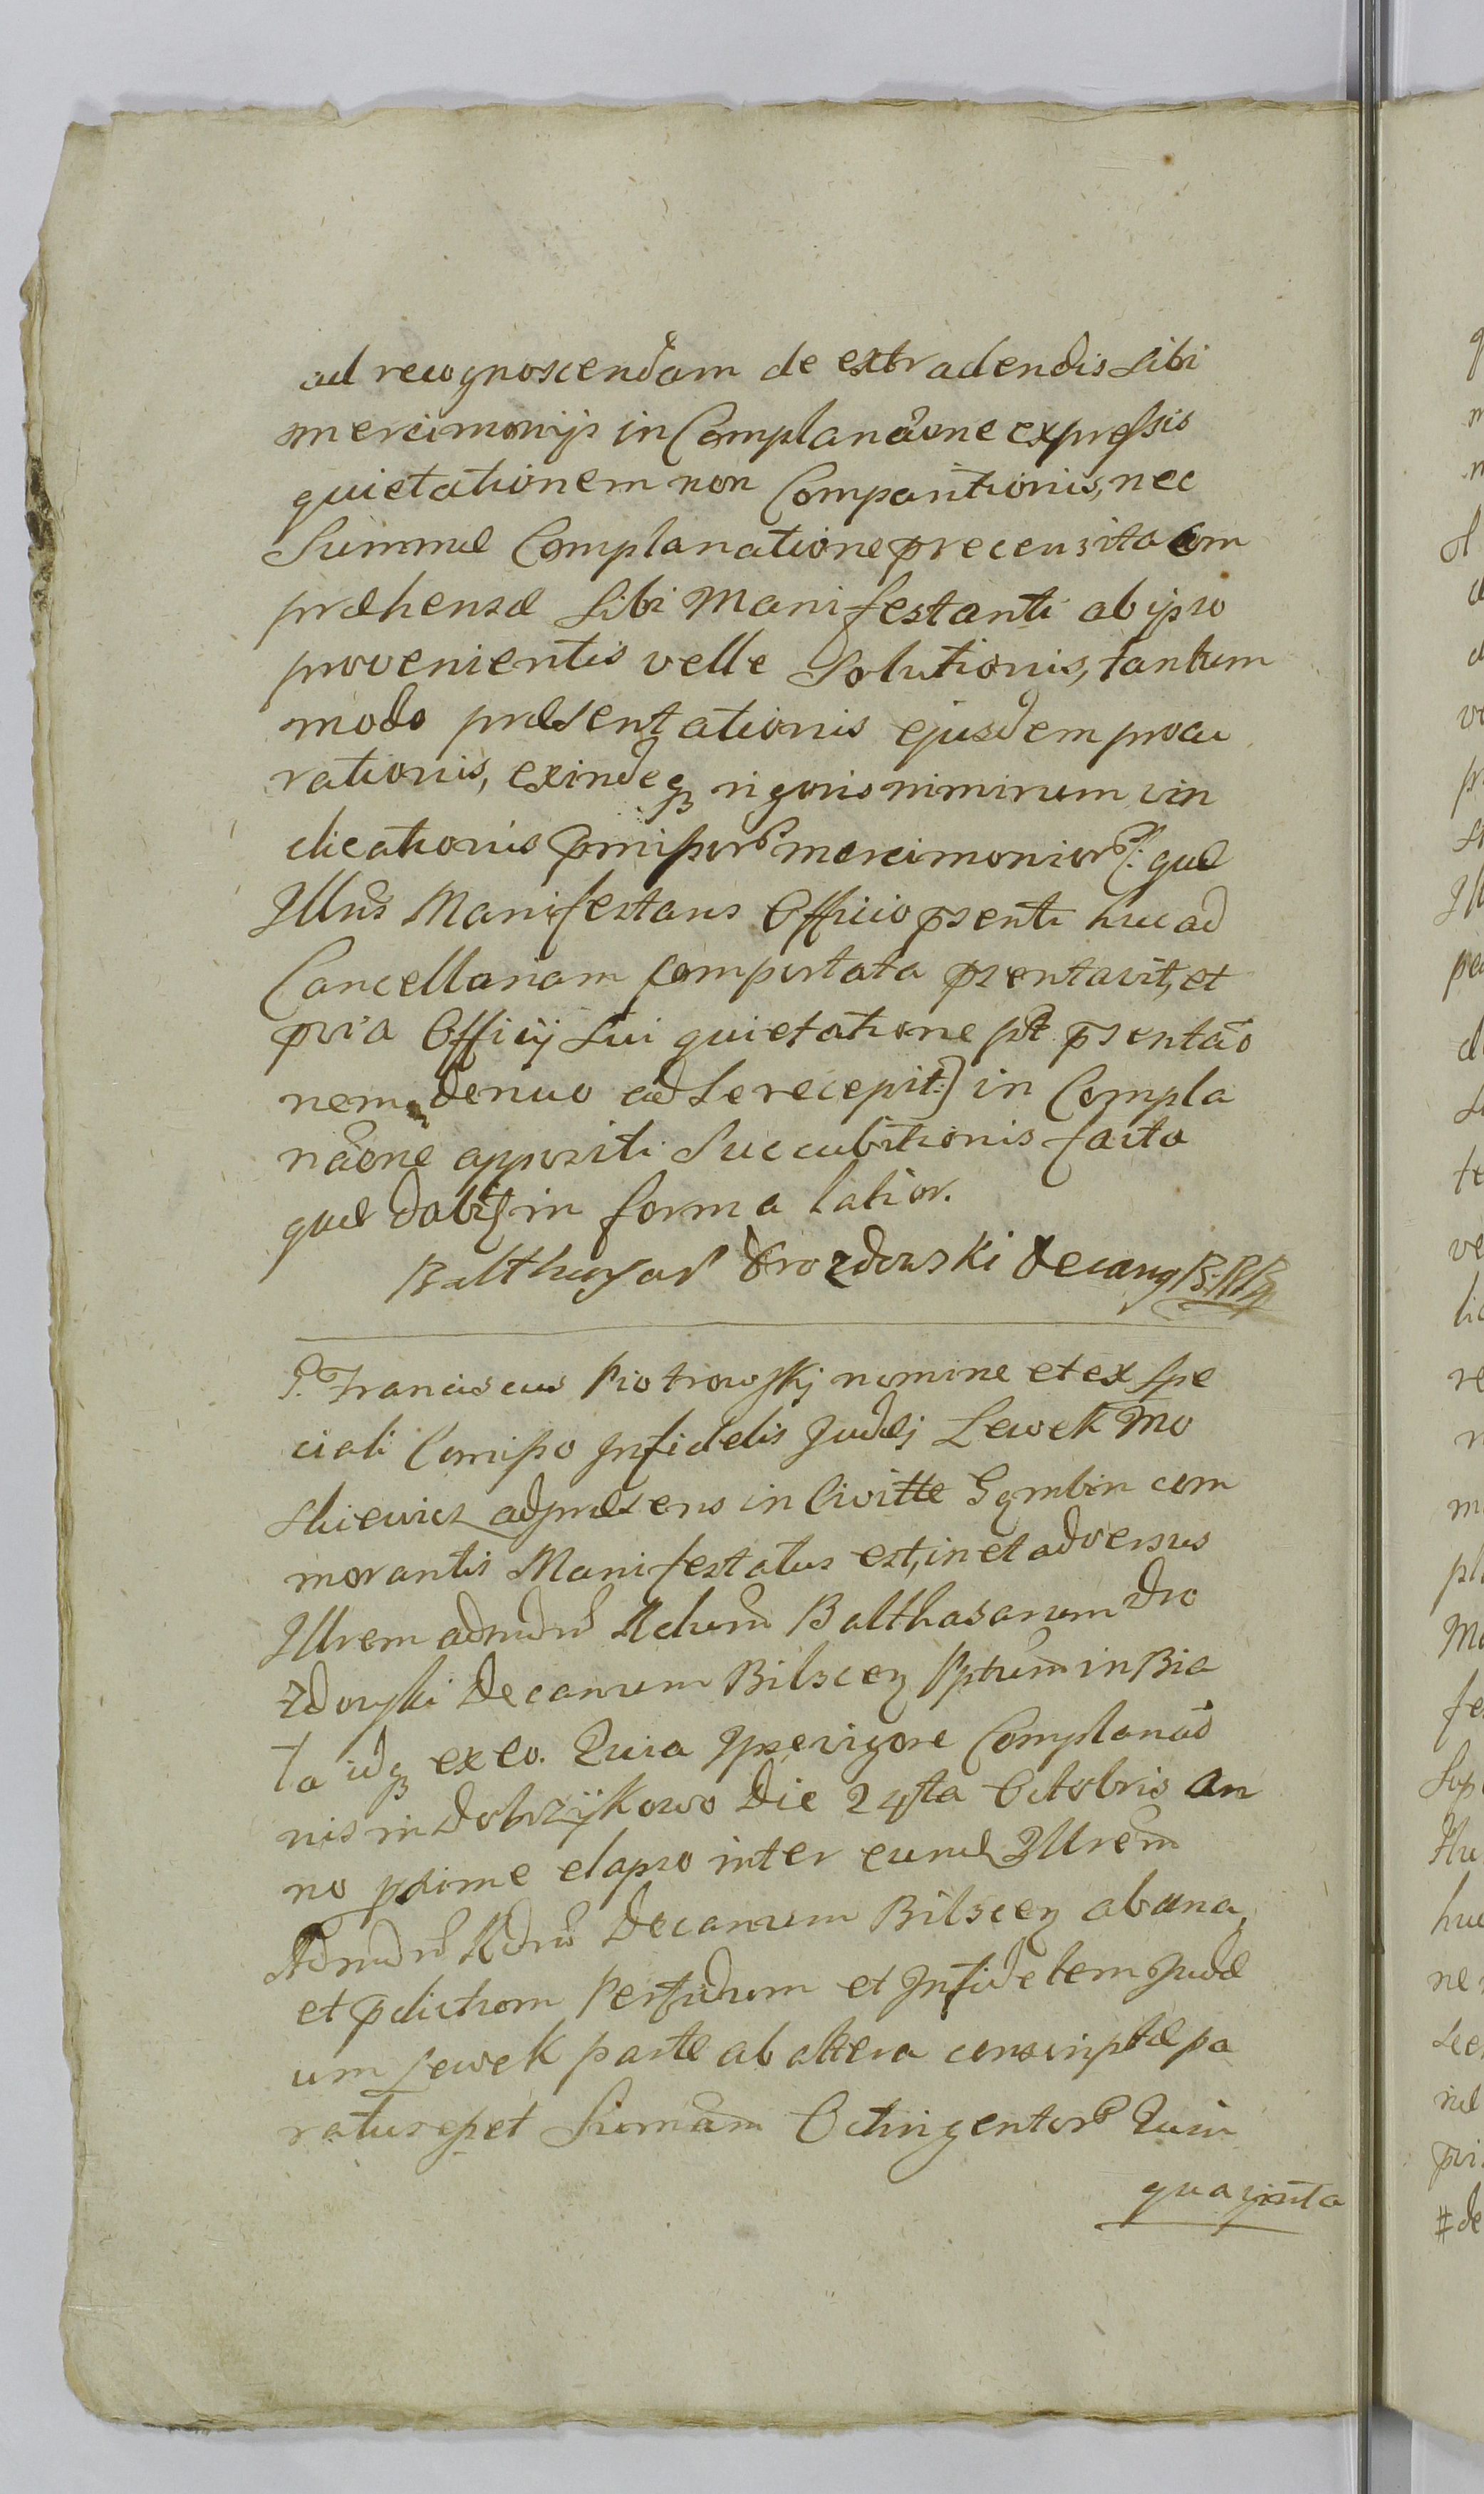 ad recognoscendam de extradendis sibi
mercimonijs in Complanaōne expressis
quietationem non Comparitionis, nec
Summæ Complanatione precensita com
præhensæ sibi Manifestanti ab ipso
provenientis velle Solutionis, tantum
modo præsentationis ejusdem procu
rationis, exindeq rigoris nimirum vin
dicationis pmissor mercimonior/: quæ
Illris Manifestans Officio psenti huc ad
Cancellariam Comportata psentavit, et
pvia Officij sui quietatione pt psentaō
nem denuo ad se recepit:/ in Compla
naōne appositi Succubitionis facta
quæ dabit in forma latior.
Balthazar Drozdowski Decang
P. Franciscus Piotrowskij nomine et ex spe
ciali Comisso Infidelis Judæj Lewek Mo
skiewicz adpræsens in Civitte Gąmbin com
morantis Manifestatus est, in et adversus
Illrem admdm Rdum Balthasarum Dro
zdowski Decanum Bilscen Pptum in Bia
ła idq ex eo. Quia Ipse vigore Complanāo
nis in Dobrzÿkowo Die 24ta Octobris an
no pxime elapso inter eund Illrem
Admdm Rdm Decanum Bilscen ab una,
et pdictum Perfidum et Infidelem Judæ
um Lewek parte ab altera conscriptæ pa
ratus et Summam Octingentor Quin
quaginta